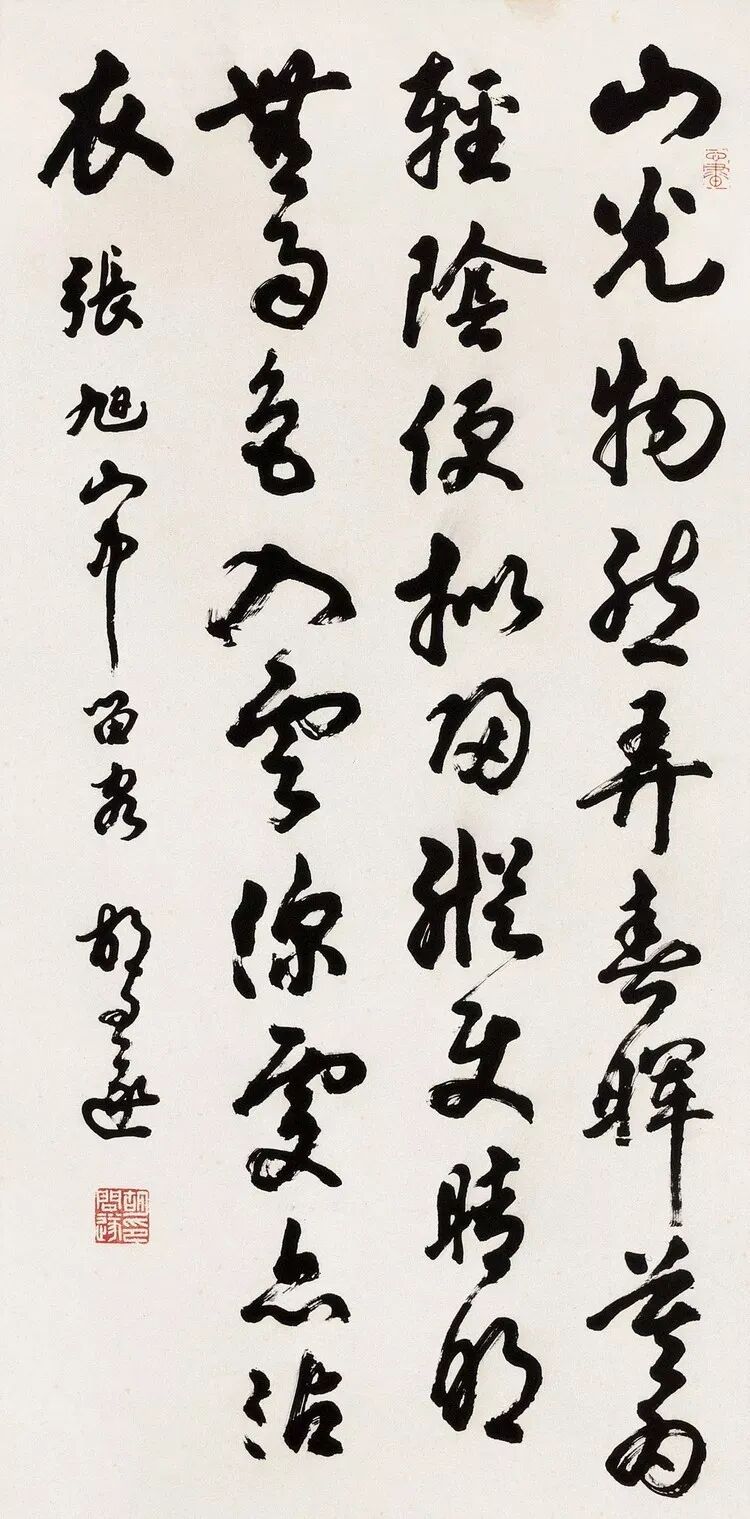 山光物態弄春暉莫為
輕陰便擬歸縱使晴明
無雨色入雲深處亦沾
衣 張旭山中留客 胡問遂
胡印問遂